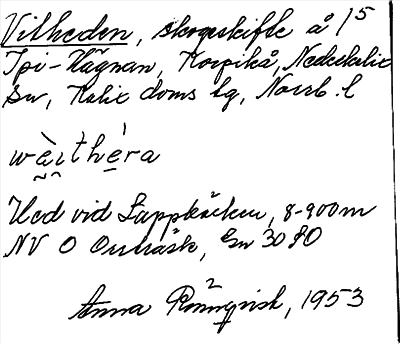 Vitheden, skogsskifte å 15
Ipi-Hägnan, Korpikå, Nederkalix
sn, Kalix doms lg, Norrb. l
wàithéra
Hed vid Lappbäcken, 8-900 m
NV O Outräsk, Gsn 3080
Anna Rönnqvist, 1953